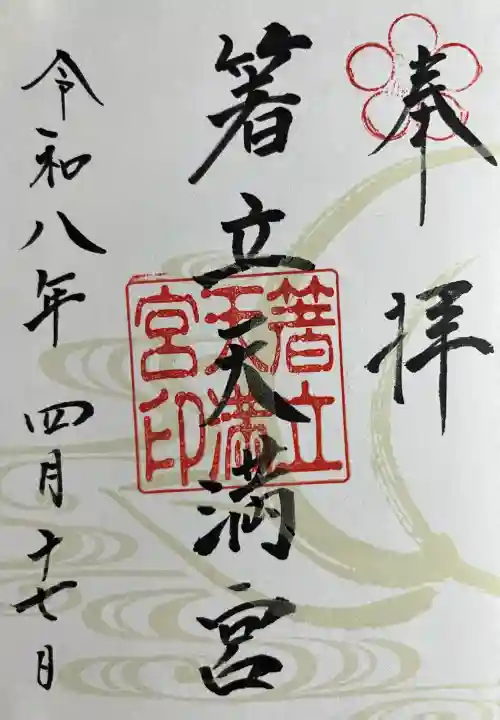 奉拝
箸立天満宮
箸立
天満
宮印
令和八年 四月十七日